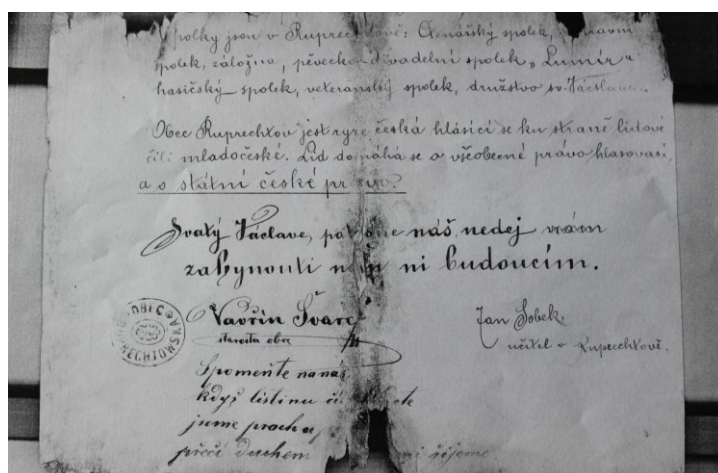 polky jsou v Ruprechtově: Čtenářský spolek,
spolek, záložna, pěvecko-divadelní spolek „Lumír"
hasičský spolek, veteranský spolek, družstvo sv. Václava.
Obec Ruprechtov jest ryze česká hlásící se ku straně lidové
čili mladočeské. Lid domáhá se o všeobecné právo hlasovací,
a o státní české právo?
Svatý Václave, náš, nedej nám
zahynouti ni budoucím.
OBEC RUPRECHTOVSKÁ
Vavřín Švarc
starosta obce
Jan Sobek.
učitel v Ruprechtově.
Spomeňte na nás
když listinu
jsme prach a
duchem žijeme